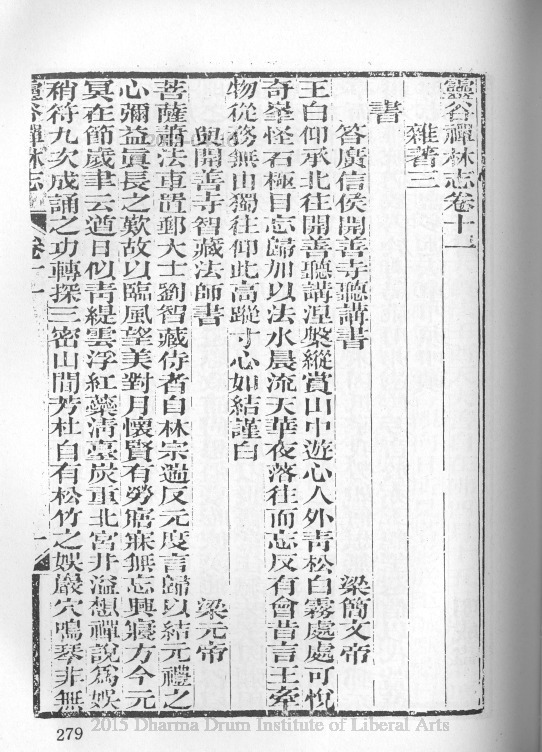 靈谷禪林志卷十一
雜著三
書
答廣信侯開善寺聽講書 梁簡文帝
王白仰承北往開善聽講涅槃縱賞山中遊心人外青松白霧處處可悅
奇峯怪石極目忘歸加以法水晨流天華夜落往而忘反有會昔言王牽
物從務無由獨往仰此高蹤寸心如結謹白
與開善寺智藏法師書 梁元帝
菩薩蕭法車置郵大士劉智藏侍者自林宗遄反元度言歸以結元禮之
心彌益眞長之歎故以臨風望美對月懷賢有勞寤寐無忘興寢方今元
冥在節歲聿云遒日似青緹雲浮紅蘂淸臺炭重北宮井溢想禪說為娛
稍符九次成誦之功轉探三密山間芳杜自有松竹之娛巖穴鳴琴非無
靈谷禪林志 卷十一 一
279
2015 Dharma Drum Institute of Liberal Arts